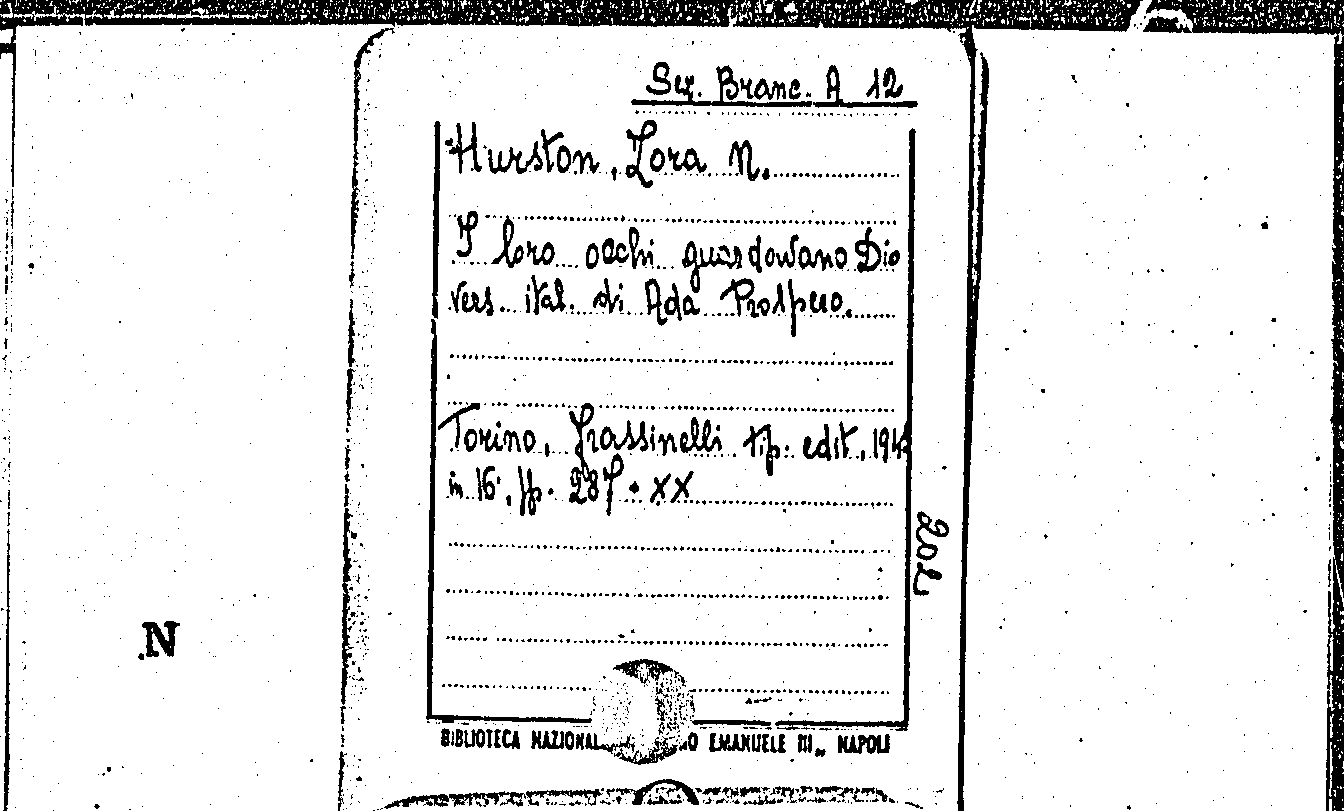 Sez. Branc. A 12
Hurston, Zora N.
I loro occhi guardavano Dio
vers. ital. di Ada Prospero.
Torino, Frassinelli tip. edit.,
in 16°, pp. 287 + XX
202
N
BIBLIOTECA NAZIONAL EMANUELE III„ NAPOLI